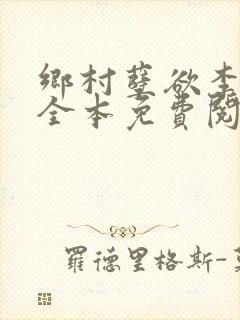 鄉村孽欲李
全本免費閱
羅德里格斯-莫